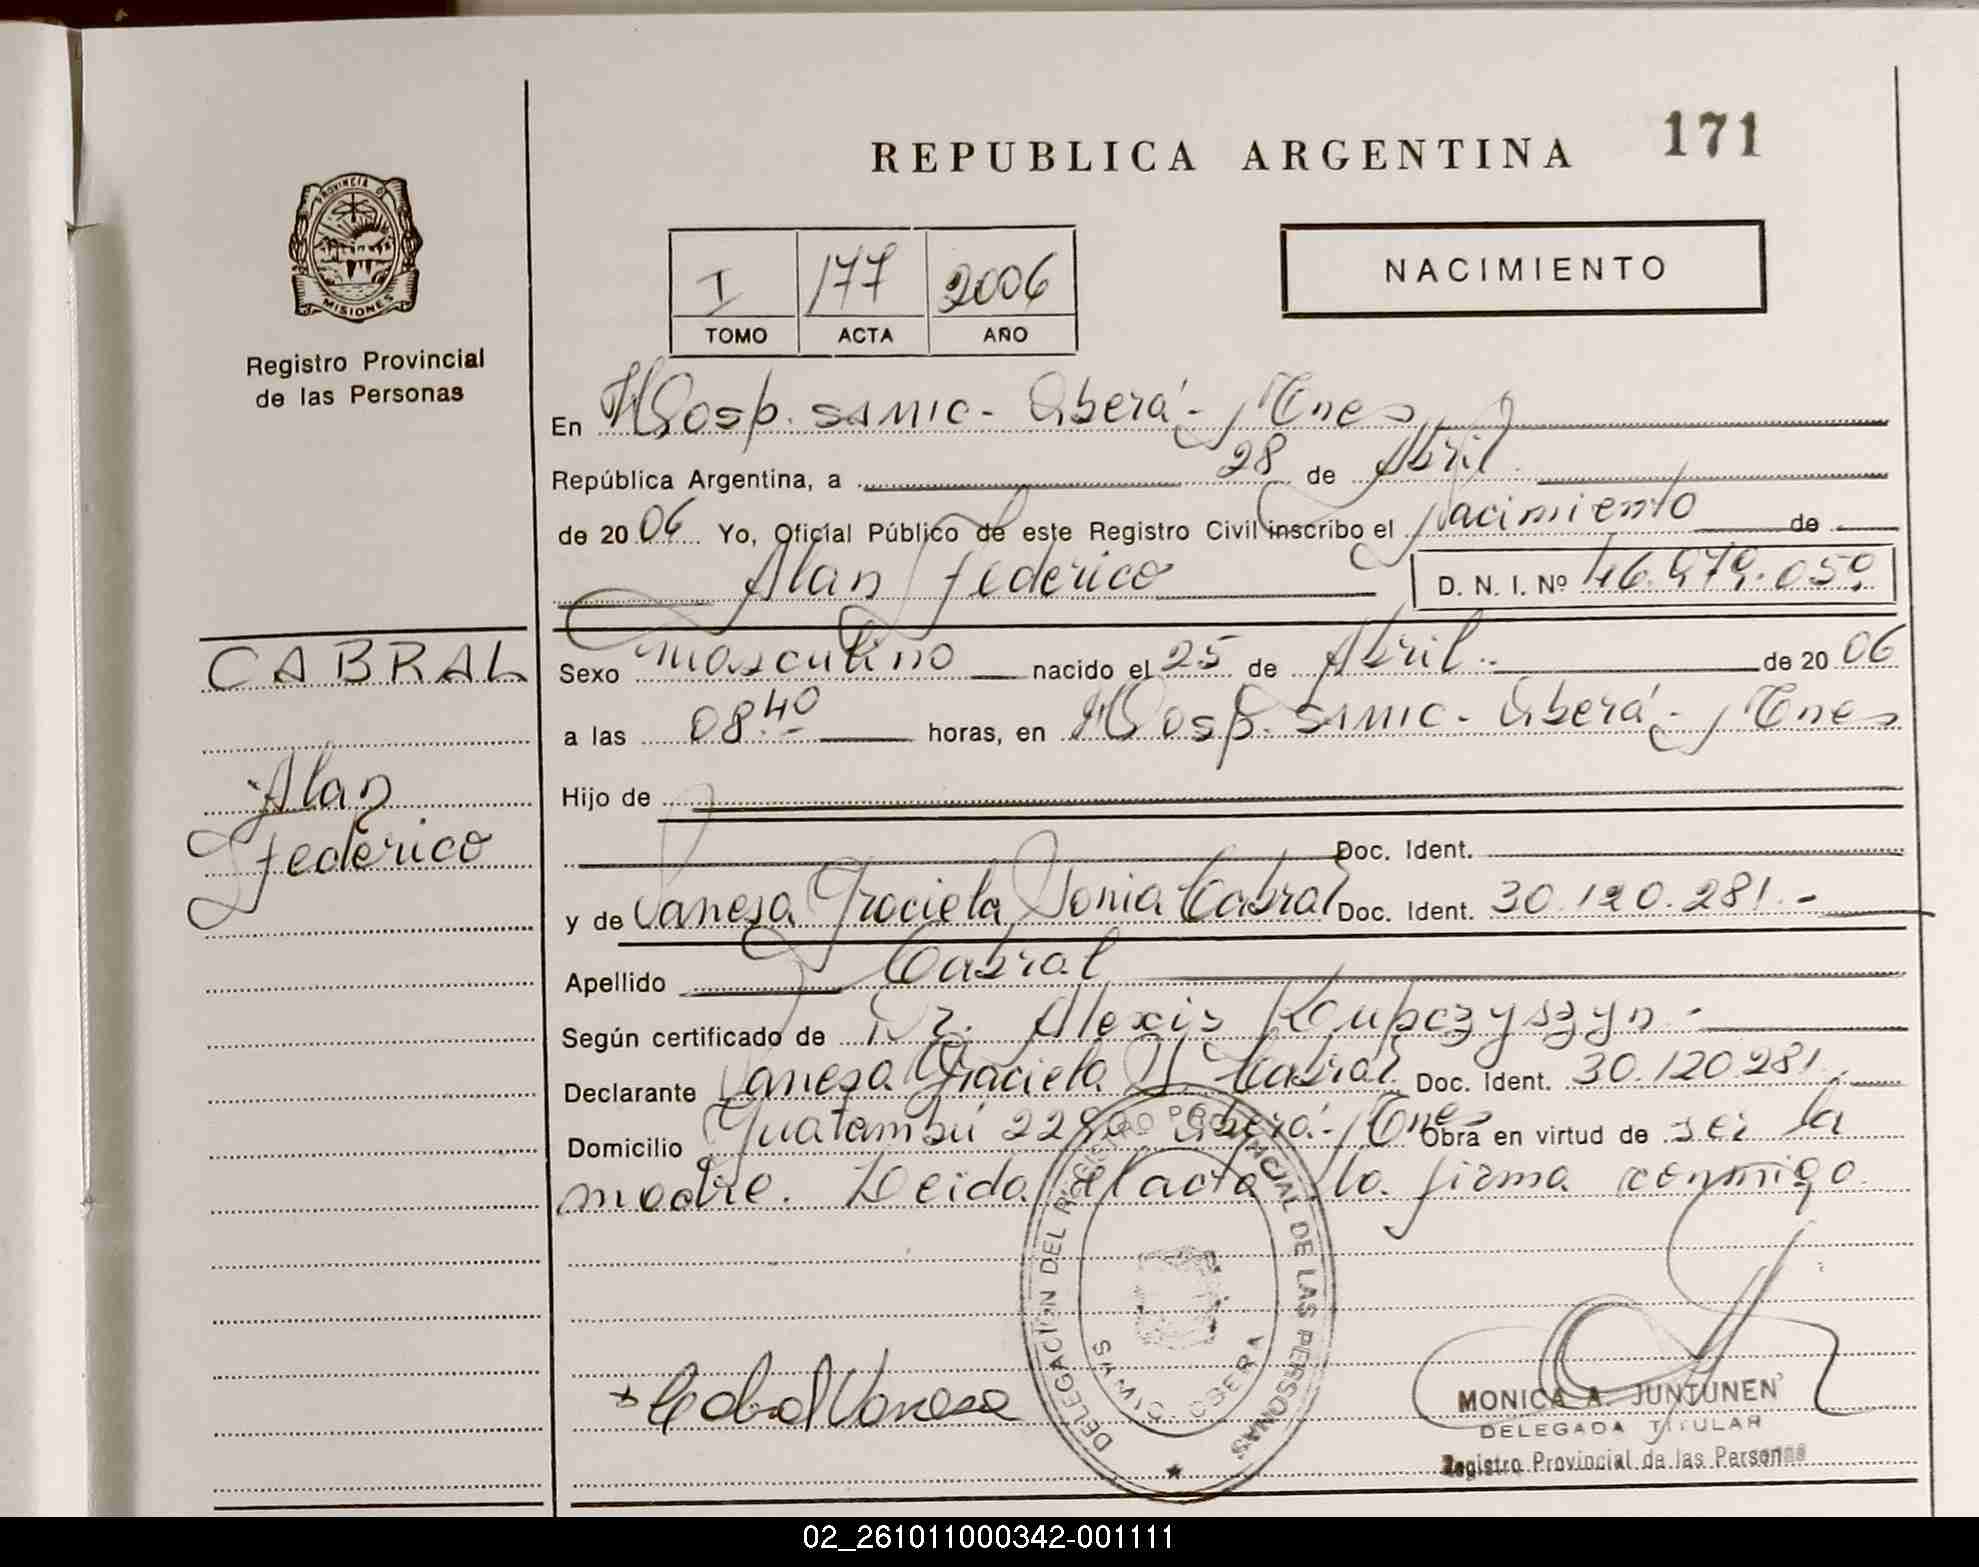 REPUBLICA ARGENTINA 171
PROVINCIA D
MISIONES
Registro Provincial
de las Personas
I 177 2006
TOMO ACTA AÑO
NACIMIENTO
En Hosp. SAMIC - Oberá - Mnes
República Argentina, a 28 de Abril
de 2006 Yo, Oficial Público de este Registro Civil inscribo el Nacimiento de
Alan Federico D. N. I. Nº 46.979.059
CABRAL
Alan
Federico
Sexo masculino nacido el 25 de Abril.- de 2006
a las 08.40 horas, en Hosp. SAMIC - Oberá - Mnes
Hijo de
Doc. Ident.
y de Vanesa Graciela Sonia Cabral Doc. Ident. 30.120.281.-
Apellido Cabral
Según certificado de Dr. Alexis Kupczyszyn.-
Declarante Vanesa Graciela S. Cabral Doc. Ident. 30.120.281.
Domicilio Guatambú Oberá - Mnes Obra en virtud de ser la
madre. Leida el acta la firma conmigo.
DELEGACION DEL REGISTRO PROVINCIAL DE LAS PERSONAS
OBERA
Cabral Vanesa
MONICA A. JUNTUNEN
DELEGADA TITULAR
Registro Provincial de las Personas
02_261011000342-001111